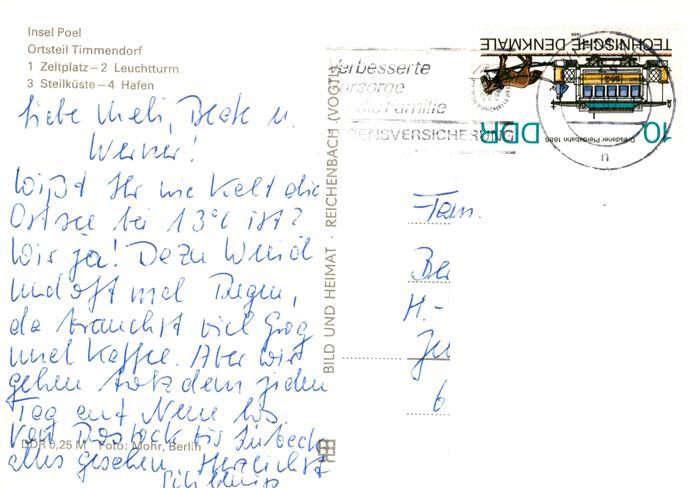 Insel Poel
Ortsteil Timmendorf
1 Zeltplatz – 2 Leuchtturm
3 Steilküste – 4 Hafen
Liebe Beate u.
Werner!
Wißt Ihr wie kalt die
Ostsee bei 13°C ist?
Wir ja! Dazu Wind
und oft mal Regen,
da brauchst viel Grog
und Kaffee. Aber wir
gehen trotzdem jeden
Tag auf Neue los
Rostock bis Lübeck
alles gesehen. Herzlichst
DDR 0,25 M Foto: Mohr, Berlin
BILD UND HEIMAT · REICHENBACH (VOGTL
Verbesserte
Vorsorge
die Familie
BENSVERSICHERUNG
TECHNISCHE DENKMALE
1986
Dresdener Pferdebahn 1886
10 DDR
u
Fam.
Be
H.-
6